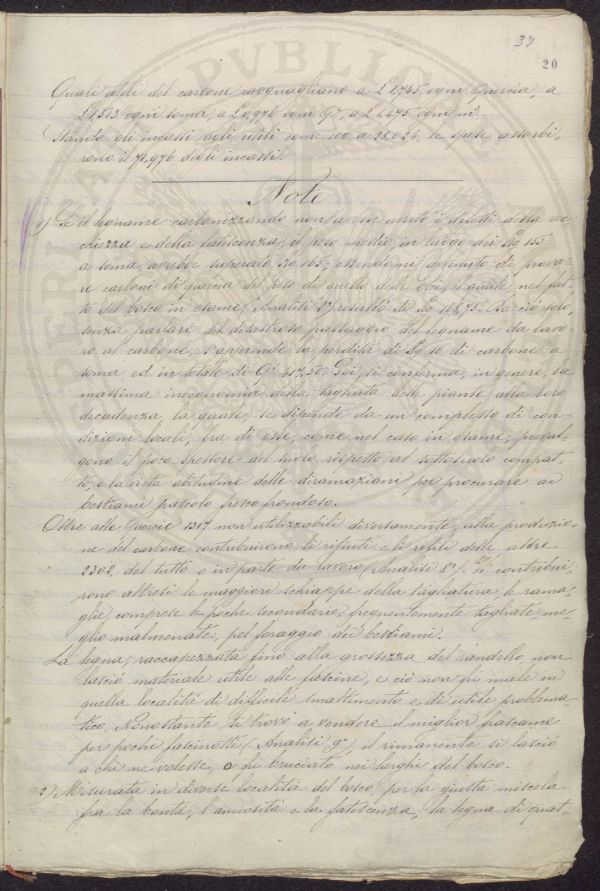 37
20
Quali utili del carbone ragguagliano a £ 1,765 ogni quercia, a
£ 1,513 ogni soma, a £ 0,976 ogni Q.le, a £ 1,475 ogni m.³
Stando gli incassi agli utili come 100 a 28,024, le spese assorbi-
rono il 71,976 degli incassi.
Note
1) Se il legname carbonizzando non avesse avuto i difetti della vec-
chiezza e della fatiscenza, il peso medio, in luogo dei Kg 155
a soma, avrebbe superato Kg 165; essendomi avvenuto di prova-
re carboni di quercia del peso di quello delle elci, il quale, nel fat-
to del bosco in esame, (Analisi 2ª) risultò di Kg 168,75. Da ciò sol
senza parlare del disastroso passaggio del legname da lavo-
ro al carbone, s'apprende la perdita di Kg 10 di carbone a
soma ed in totale di Q.li 417,50. Poi, si conferma, in genere, la
massima ineconomia della tagliata delle piante alla loro
decadenza, la quale, se dipende da un complesso di con-
dizioni locali, tra di esse, come nel caso in esame, preval-
gono il poco spessore del suolo rispetto al sottosuolo compat-
to, e la vista abitudine delle diramazioni per procurare ai
bestiami pascolo fresco frondoso.
Oltre alle Quercie 1317 non utilizzabili diversamente, alla produzio-
ne del carbone contribuirono li rifiuti e li rifili delle altre
2302, del tutto o in parte da lavoro (Analisi 8ª). Vi contribui-
rono altresì le maggiori schiappe della tagliatura, le rama-
glie, comprese le poche secondarie, frequentemente tagliate, me-
glio malmenate, pel foraggio dei bestiami.
La legna, raccapezzata fino alla grossezza del randello, non
lasciò materiale utile alle fascine, e ciò non fu male in
quella località di difficile smaltimento e di utile problema-
tico. Nonostante si trovò a vendere il miglior frascame
per pochi fascinotti (Analisi 9ª); il rimanente si lasciò
a chi ne volesse, o fu bruciato nei larghi del bosco.
2) Misurata in diverse località del bosco, per la giusta miscela
fra la bontà, l'annosità e la fatiscenza, la legna di quat-